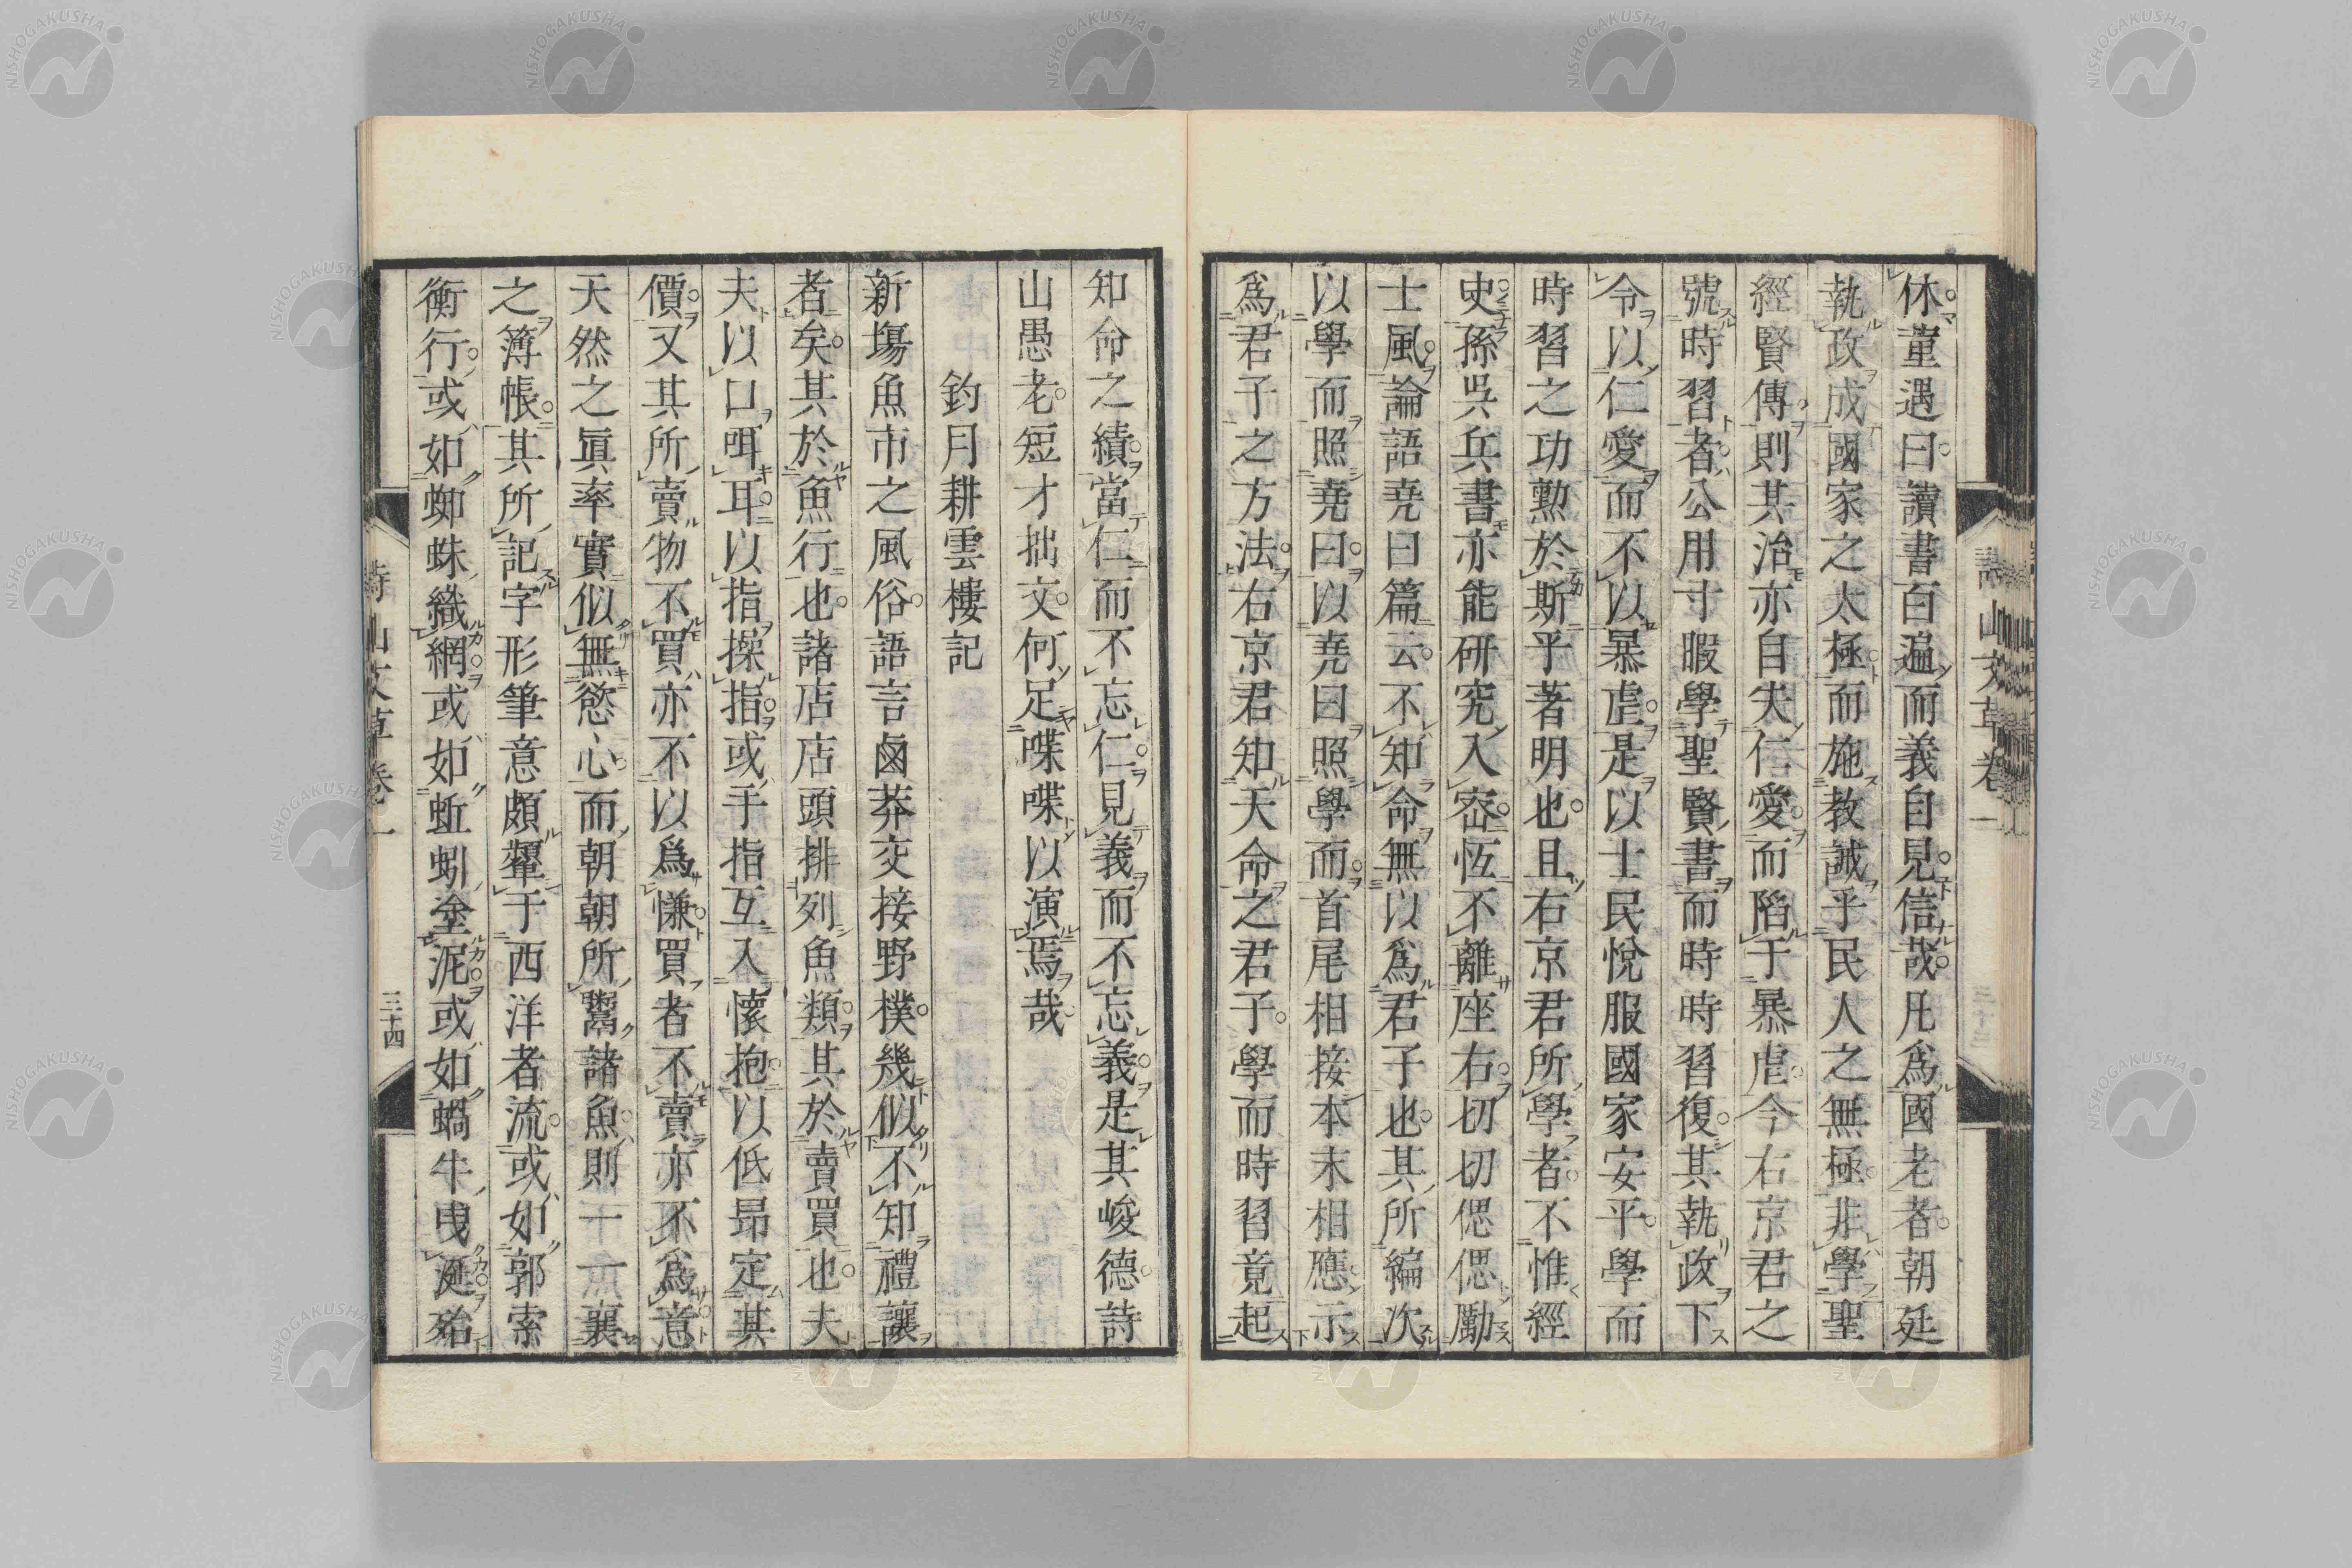 休董遇曰讀書百遍而義自見信哉凡爲國老者朝廷
執政成國家之太極而施教誡乎民人之無極非學聖
經賢傳則其治亦自失仁愛而陷于暴虐今右京君之
號時習者公用寸暇學聖賢書而時時習復其執政下
令以仁愛而不以暴虐是以士民悅服國家安平學而
時習之功勲於斯乎著明也且右京君所學者不惟經
史孫吳兵書亦能研究入密恆不離座右切切偲偲勵
士風論語堯曰篇云不知命無以爲君子也其所編次
以學而照堯曰以堯曰照學而首尾相接本末相應示
爲君子之方法右京君知天命之君子學而時習竟起
知命之績當仁而不忘仁見義而不忘義是其峻德詩
山愚老短才拙文何足喋喋以演焉哉
釣月耕雲樓記
新塲魚市之風俗語言鹵莽交接野樸幾似不知禮讓
者矣其於魚行也諸店店頭排列魚類其於賣買也夫
夫以口咡耳以指操指或手指互入懷抱以低昂定其
價又其所賣物不買亦不以爲慊買者不賣亦不爲意
天然之眞率實似無慾心而朝朝所鬻諸魚則十一魚襄
之簿帳其所記字形筆意頗顰于西洋者流或如郭索
衡行或如蜘蛛織網或如蚯蚓塗泥或如蝸牛曳涎殆
詩山文草卷一
三十四